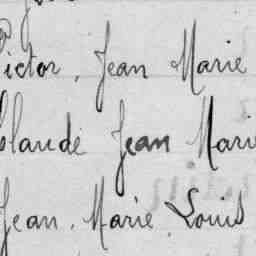 Victor, Jean Marie
Claude Jean Marie
Jean, Marie Louis